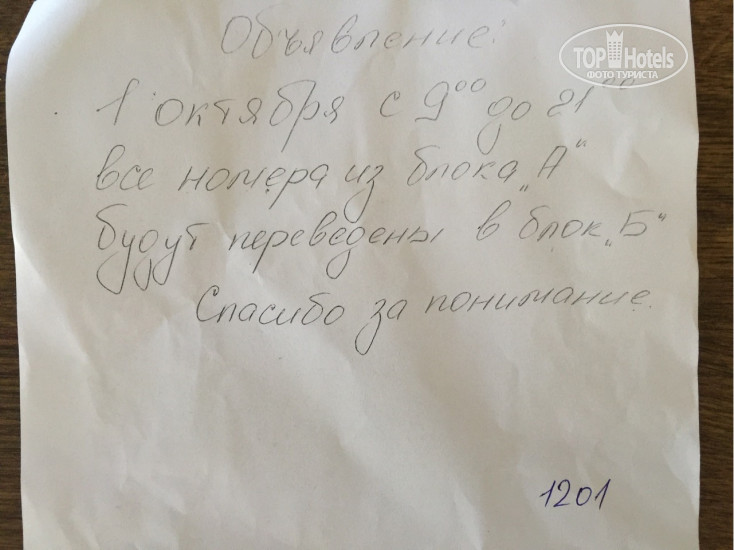 Объявление:
TOP Hotels
ФОТО ТУРИСТА
1 октября с 9⁰⁰ до 21⁰⁰
все номера из блока „А“
будут переведены в блок „Б“
Спасибо за понимание.
1201